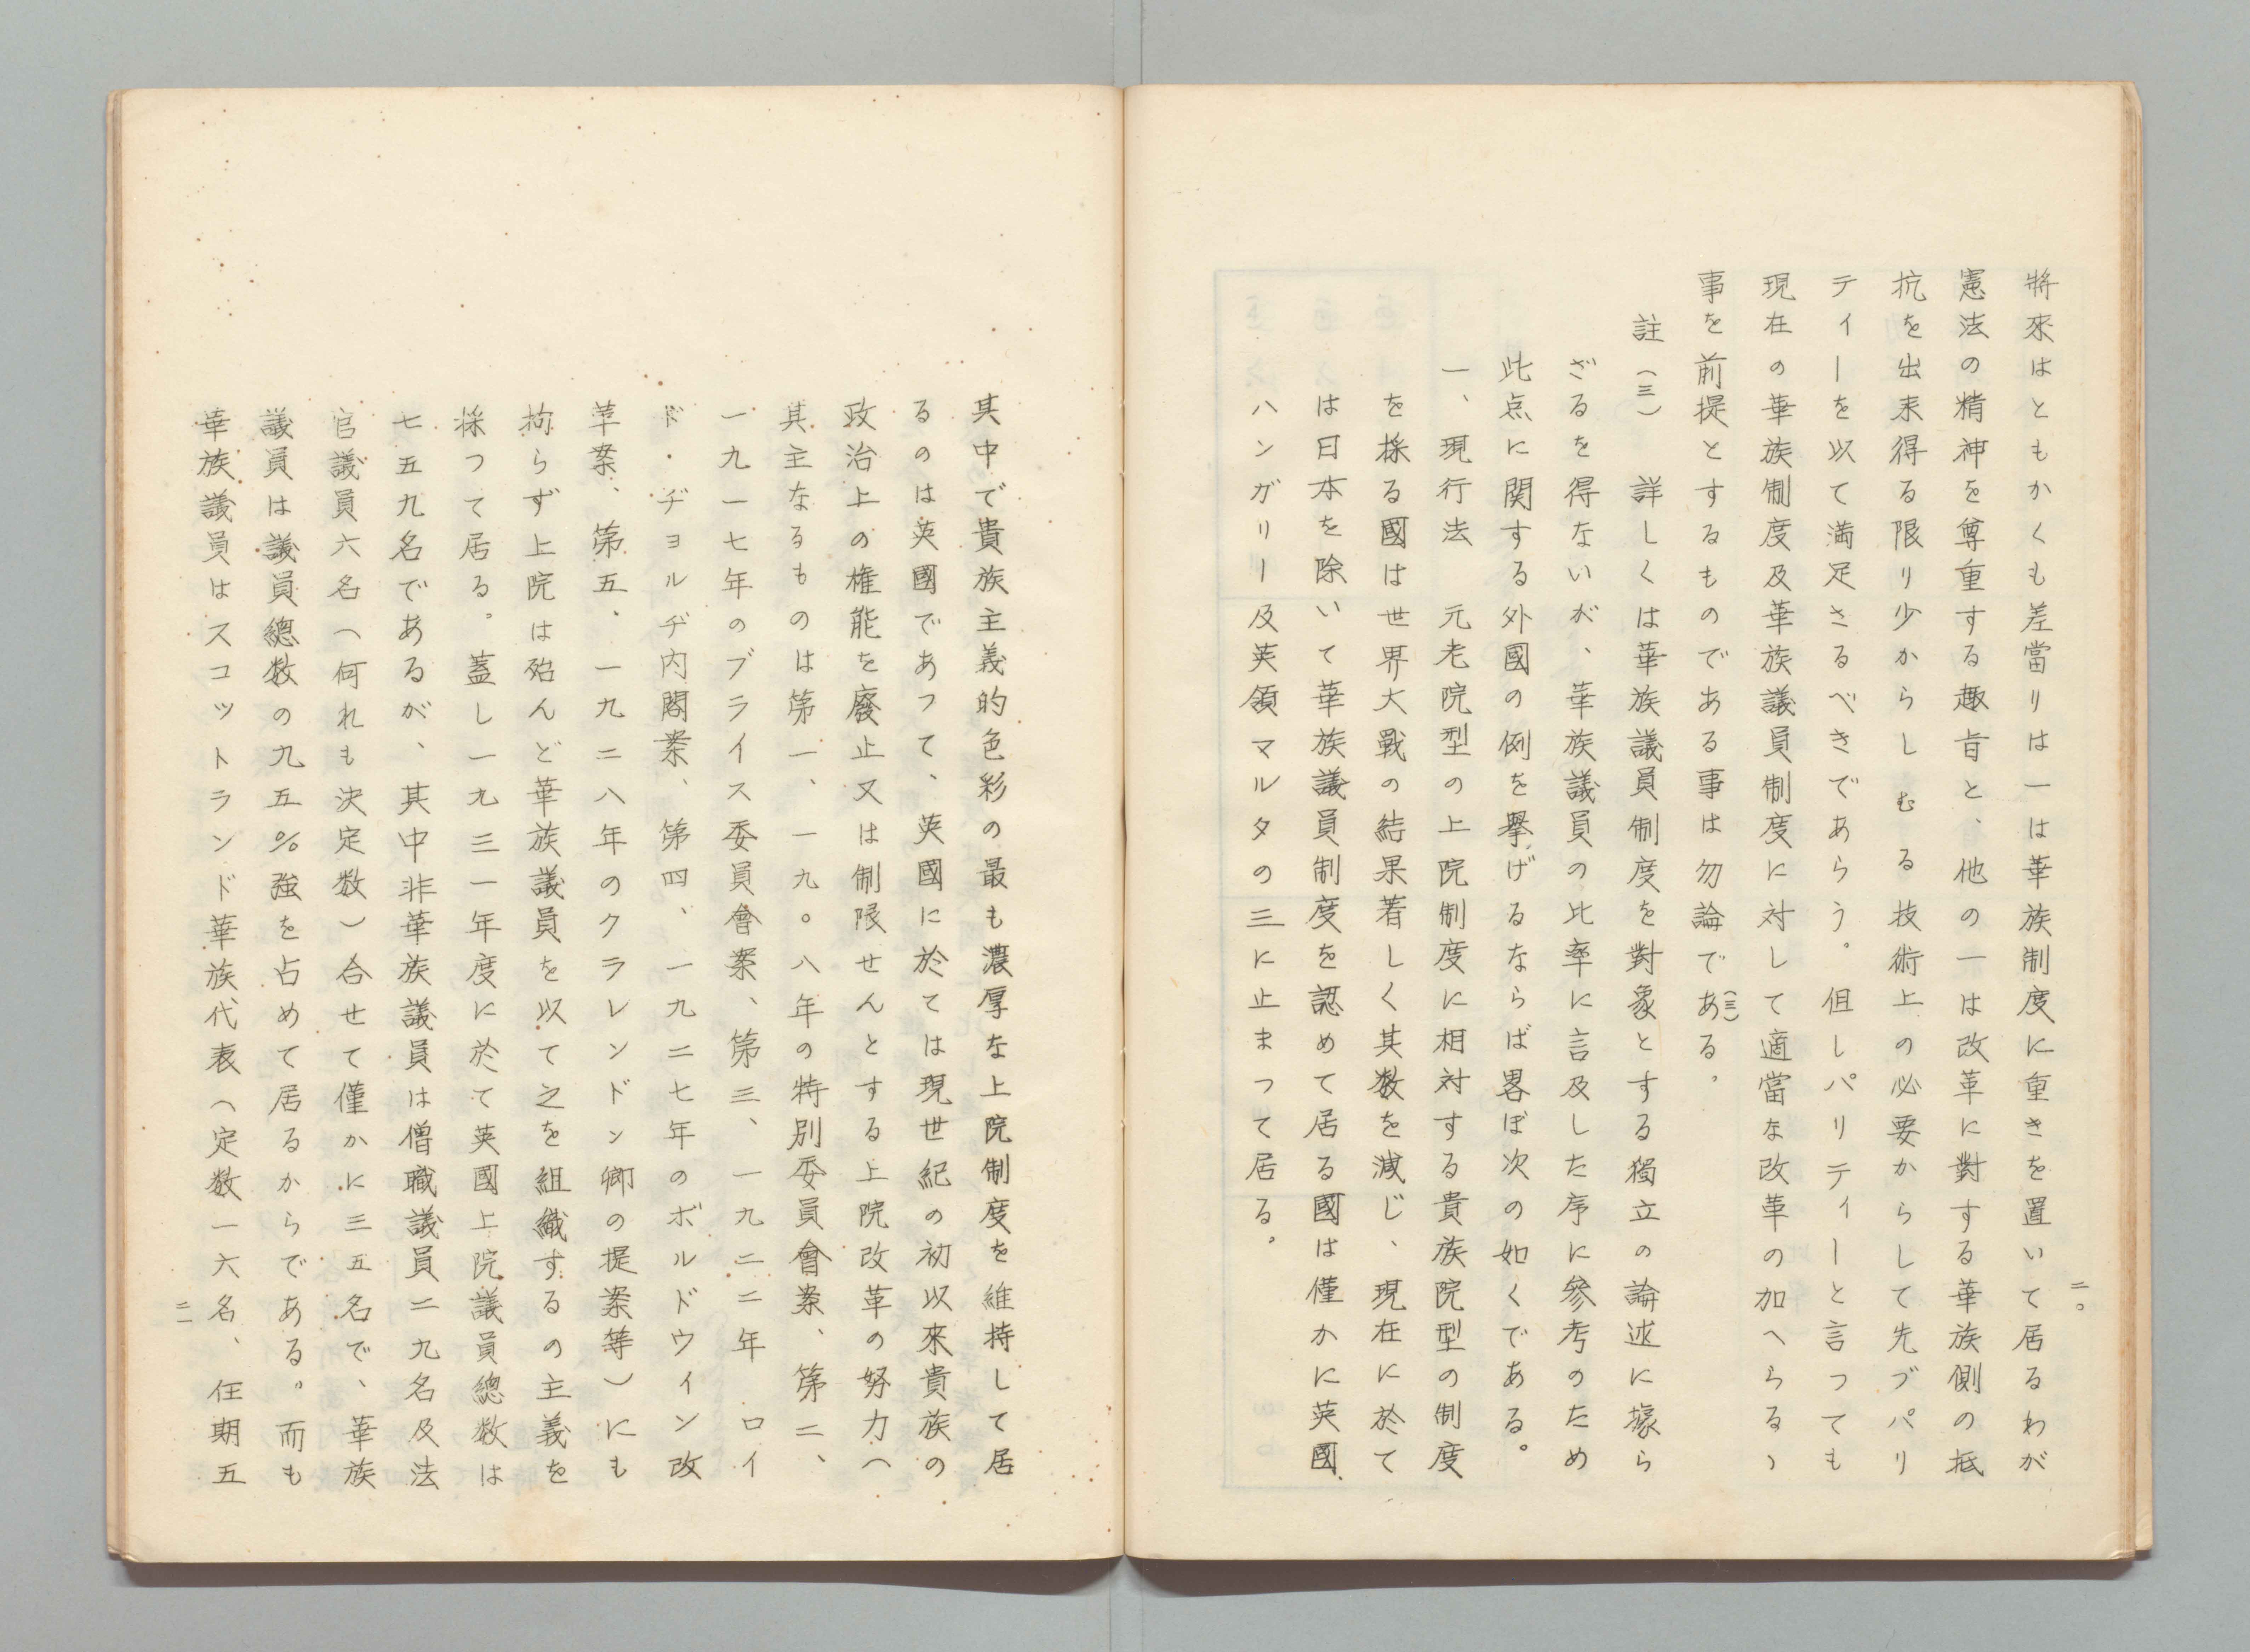 將來はともかくも差當りは一は華族制度に重きを置いて居るわが
憲法の精神を尊重する趣旨と、他の一は改革に對する華族側の抵
抗を出来得る限り少からしむる技術上の必要からして先づパリ
ティーを以て満足さるべきであらう。但しパリティーと言つても
現在の華族制度及華族議員制度に対して適當な改革の加へらるゝ
事を前提とするものである事は勿論である。
(三)
註(三) 詳しくは華族議員制度を對象とする獨立の論述に據ら
ざるを得ないが、華族議員の比率に言及した序に參考のため
此点に関する外國の例を擧げるならば畧ぼ次の如くである。
一、現行法 元老院型の上院制度に相対する貴族院型の制度
を採る國は世界大戰の結果著しく其数を減じ、現在に於て
は日本を除いて華族議員制度を認めて居る國は僅かに英國、
ハンガリー及英領マルタの三に止まつて居る。
二〇
其中で貴族主義的色彩の最も濃厚な上院制度を維持して居
るのは英國であつて、英國に於ては現世紀の初以來貴族の
政治上の権能を廢止又は制限せんとする上院改革の努力(
其主なるものは第一、一九〇八年の特別委員會案、第二、
一九一七年のブライス委員會案、第三、一九二二年ロイ
ド・ヂョルヂ内閣案、第四、一九二七年のボルドウィン改
革案、第五、一九二八年のクラレンドン卿の提案等)にも
拘らず上院は殆んど華族議員を以て之を組織するの主義を
採つて居る。蓋し一九三一年度に於て英國上院議員總数は
七五九名であるが、其中非華族議員は僧職議員二九名及法
官議員六名(何れも決定数)合せて僅かに三五名で、華族
議員は議員總数の九五%強を占めて居るからである。而も
華族議員はスコットランド華族代表(定数一六名、任期五
二一